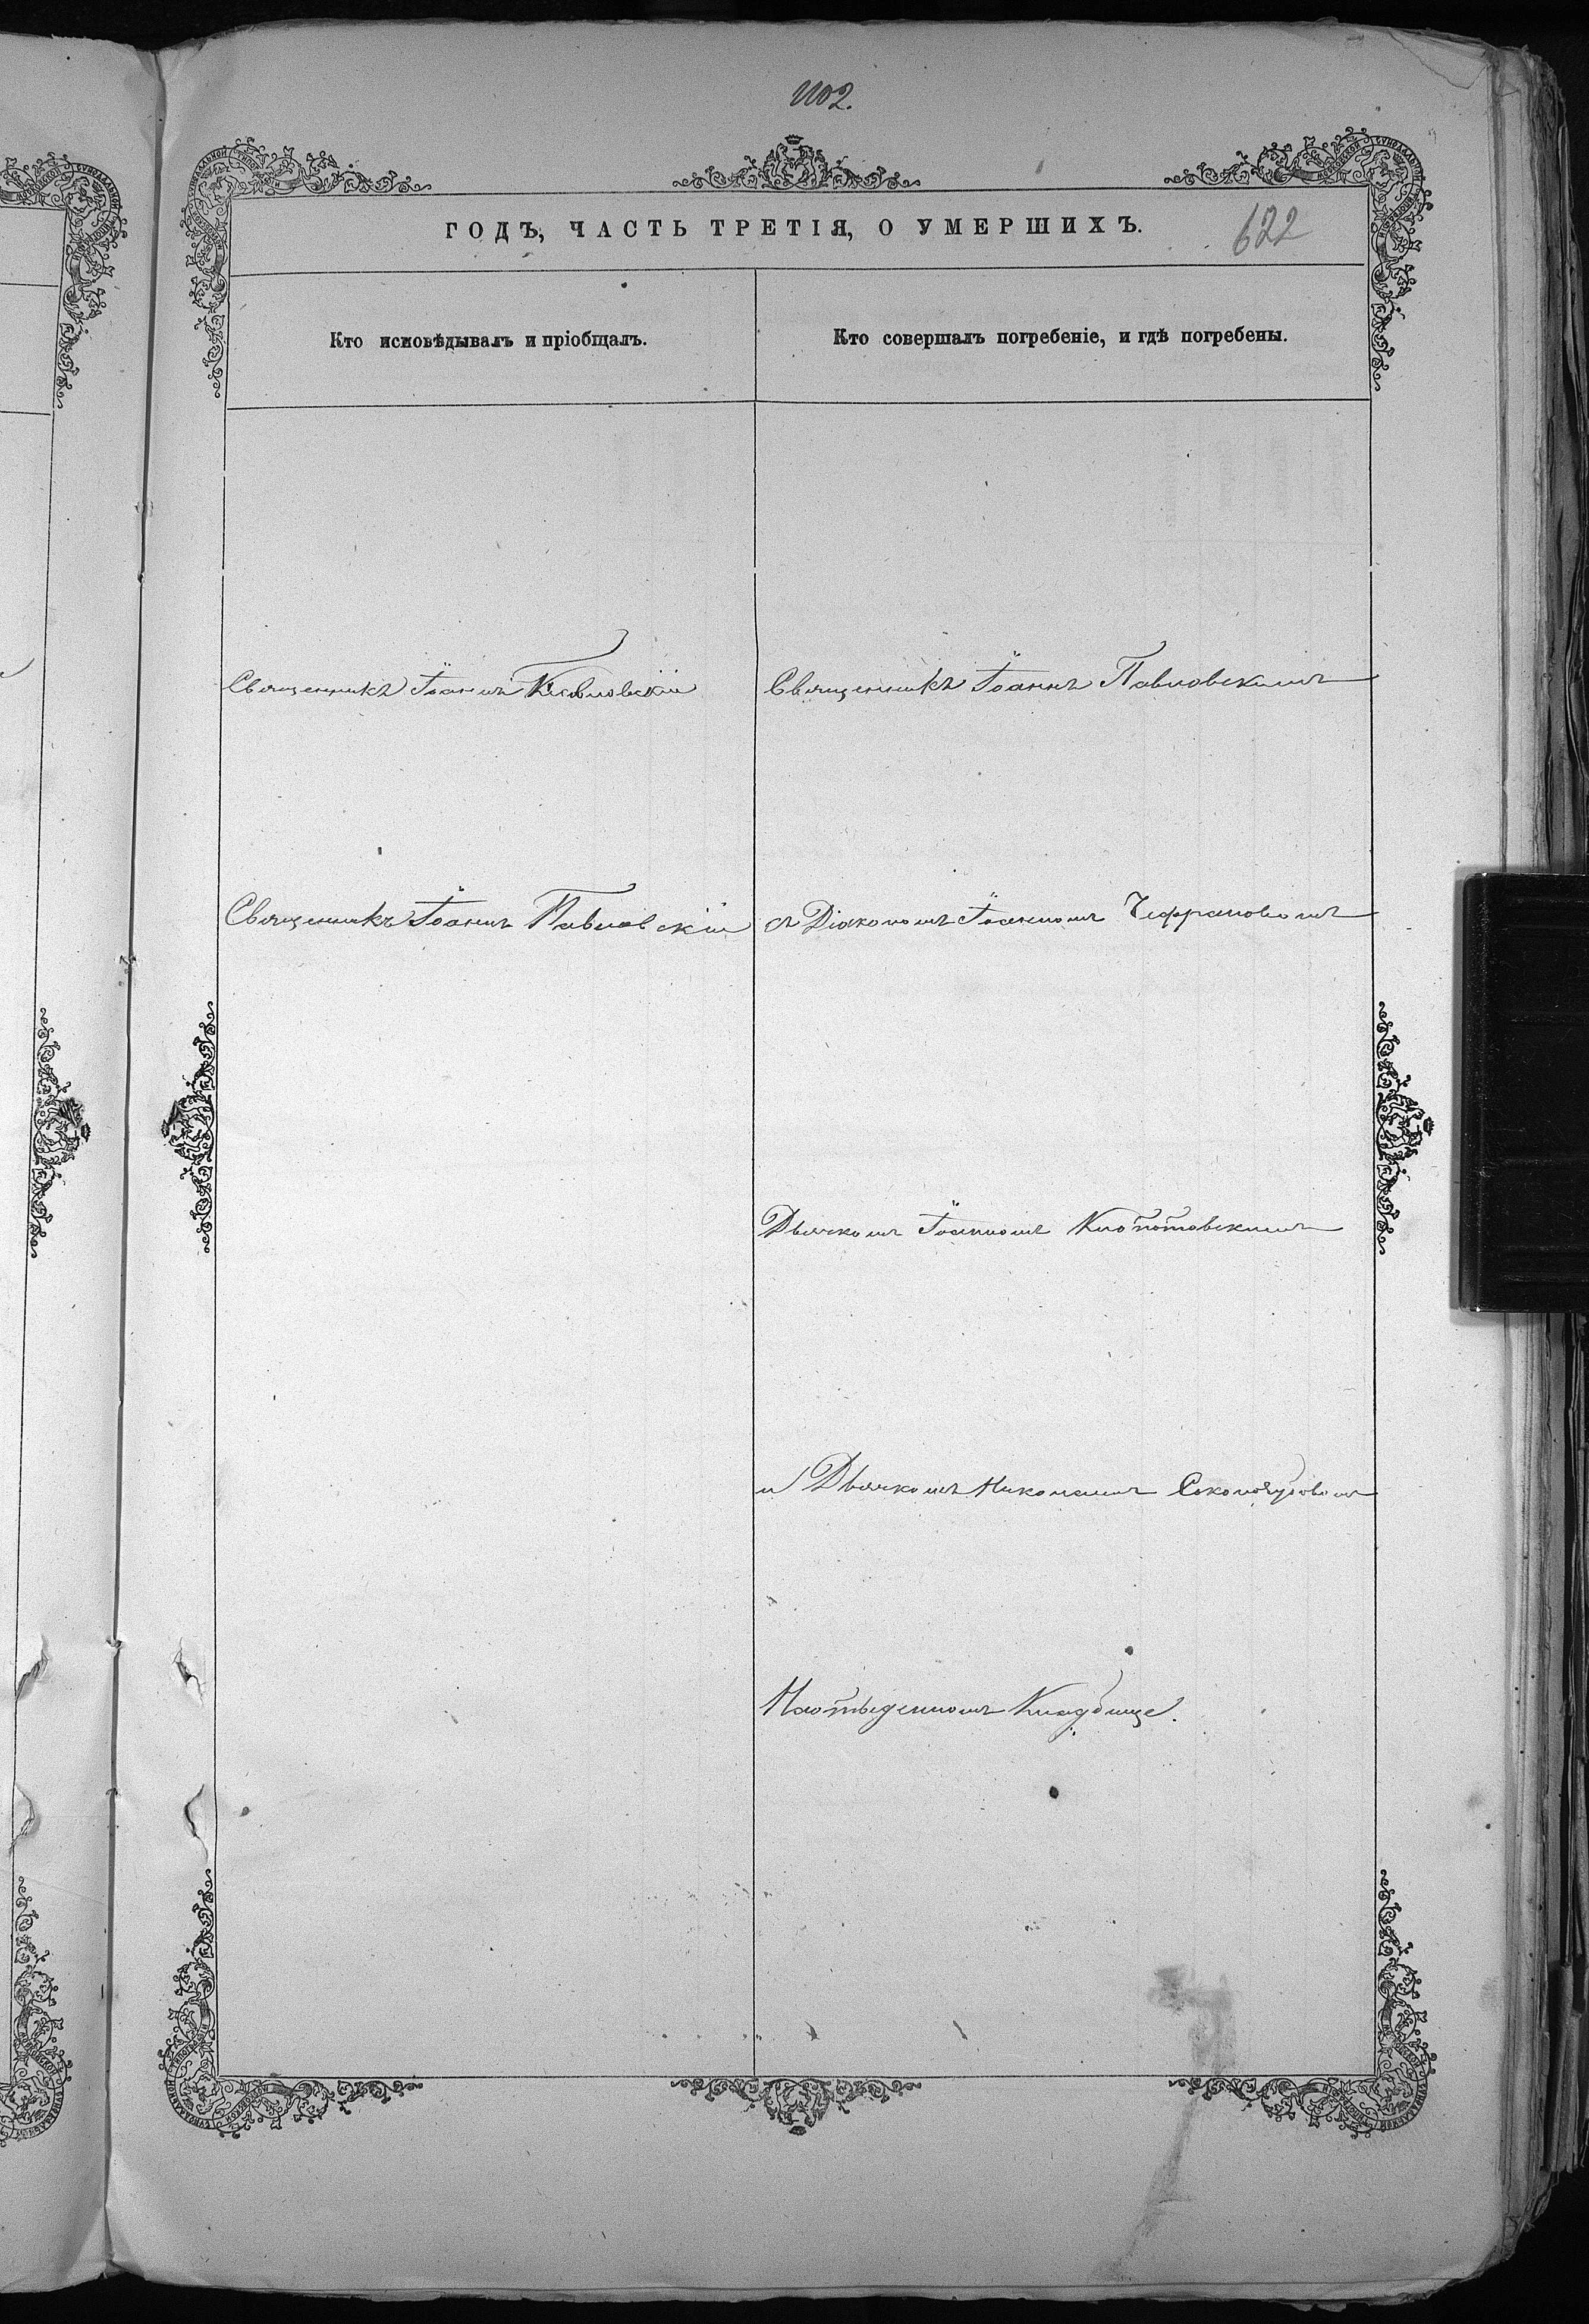 1102.
ГОДЪ, ЧАСТЬ ТРЕТІЯ, О УМЕРШИХЪ.
622
Кто исповѣдывалъ и пріобщалъ.
Кто совершалъ погребеніе, и гдѣ погребены.
Священникъ Іоаннъ Павловскій
Священникъ Іоаннъ Павловскимъ
Священникъ Іоаннъ Павловскій
съ Діакономъ Іоанномъ Чефрановомъ
Дьячкомъ Іоанномъ Клопотовскимъ
и Дьячкомъ Николаемъ
На отведенномъ Кладбище.